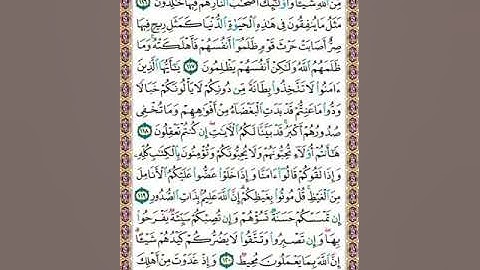 مِنَ ٱللَّهِ شَيْـًٔا وَأُو۟لَٰٓئِكَ أَصْحَٰبُ ٱلنَّارِ هُمْ فِيهَا خَٰلِدُونَ ١١٦
مَثَلُ مَا يُنفِقُونَ فِى هَٰذِهِ ٱلْحَيَوٰةِ ٱلدُّنْيَا كَمَثَلِ رِيحٍ فِيهَا
صِرٌّ أَصَابَتْ حَرْثَ قَوْمٍ ظَلَمُوٓا۟ أَنفُسَهُمْ فَأَهْلَكَتْهُ وَمَا
ظَلَمَهُمُ ٱللَّهُ وَلَٰكِنْ أَنفُسَهُمْ يَظْلِمُونَ ١١٧ يَٰٓأَيُّهَا ٱلَّذِينَ
ءَامَنُوا۟ لَا تَتَّخِذُوا۟ بِطَانَةً مِّن دُونِكُمْ لَا يَأْلُونَكُمْ خَبَالًا
وَدُّوا۟ مَا عَنِتُّمْ قَدْ بَدَتِ ٱلْبَغْضَآءُ مِنْ أَفْوَٰهِهِمْ وَمَا تُخْفِى
صُدُورُهُمْ أَكْبَرُ قَدْ بَيَّنَّا لَكُمُ ٱلْءَايَٰتِ إِن كُنتُمْ تَعْقِلُونَ ١١٨
هَٰٓأَنتُمْ أُو۟لَآءِ تُحِبُّونَهُمْ وَلَا يُحِبُّونَكُمْ وَتُؤْمِنُونَ بِٱلْكِتَٰبِ كُلِّهِۦ
وَإِذَا لَقُوكُمْ قَالُوٓا۟ ءَامَنَّا وَإِذَا خَلَوْا۟ عَضُّوا۟ عَلَيْكُمُ ٱلْأَنَامِلَ
مِنَ ٱلْغَيْظِ قُلْ مُوتُوا۟ بِغَيْظِكُمْ إِنَّ ٱللَّهَ عَلِيمٌۢ بِذَاتِ ٱلصُّدُورِ ١١٩
إِن تَمْسَسْكُمْ حَسَنَةٌ تَسُؤْهُمْ وَإِن تُصِبْكُمْ سَيِّئَةٌ يَفْرَحُوا۟
بِهَا وَإِن تَصْبِرُوا۟ وَتَتَّقُوا۟ لَا يَضُرُّكُمْ كَيْدُهُمْ شَيْـًٔا
إِنَّ ٱللَّهَ بِمَا يَعْمَلُونَ مُحِيطٌ ١٢٠ وَإِذْ غَدَوْتَ مِنْ أَهْلِكَ